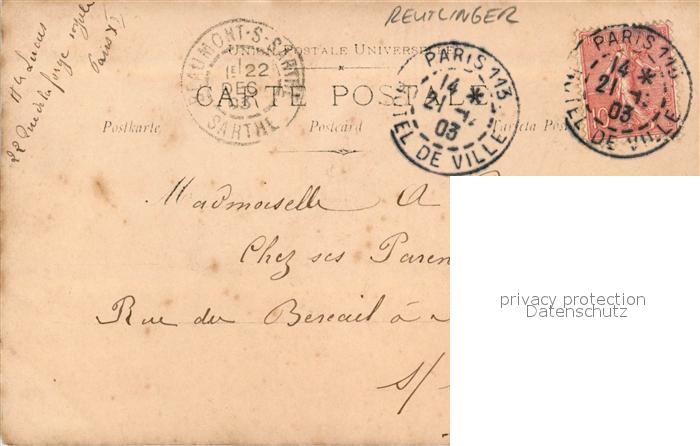 REUTLINGER
UNION POSTALE UNIVERSELLE
CARTE POSTALE
Postkarte Postcard Tarjeta Post
BEAUMONT-S-SARTHE
1E 22
DEC
03
SARTHE
PARIS 113
14 *
21
03
HOTEL DE VILLE
PARIS 113
14 *
21
03
HOTEL DE VILLE
10
Lucas
22 Rue de la forge royale
Paris XI
Mademoiselle A
Chez ses Paren
Rue du Bereail à
S/
privacy protection
Datenschutz